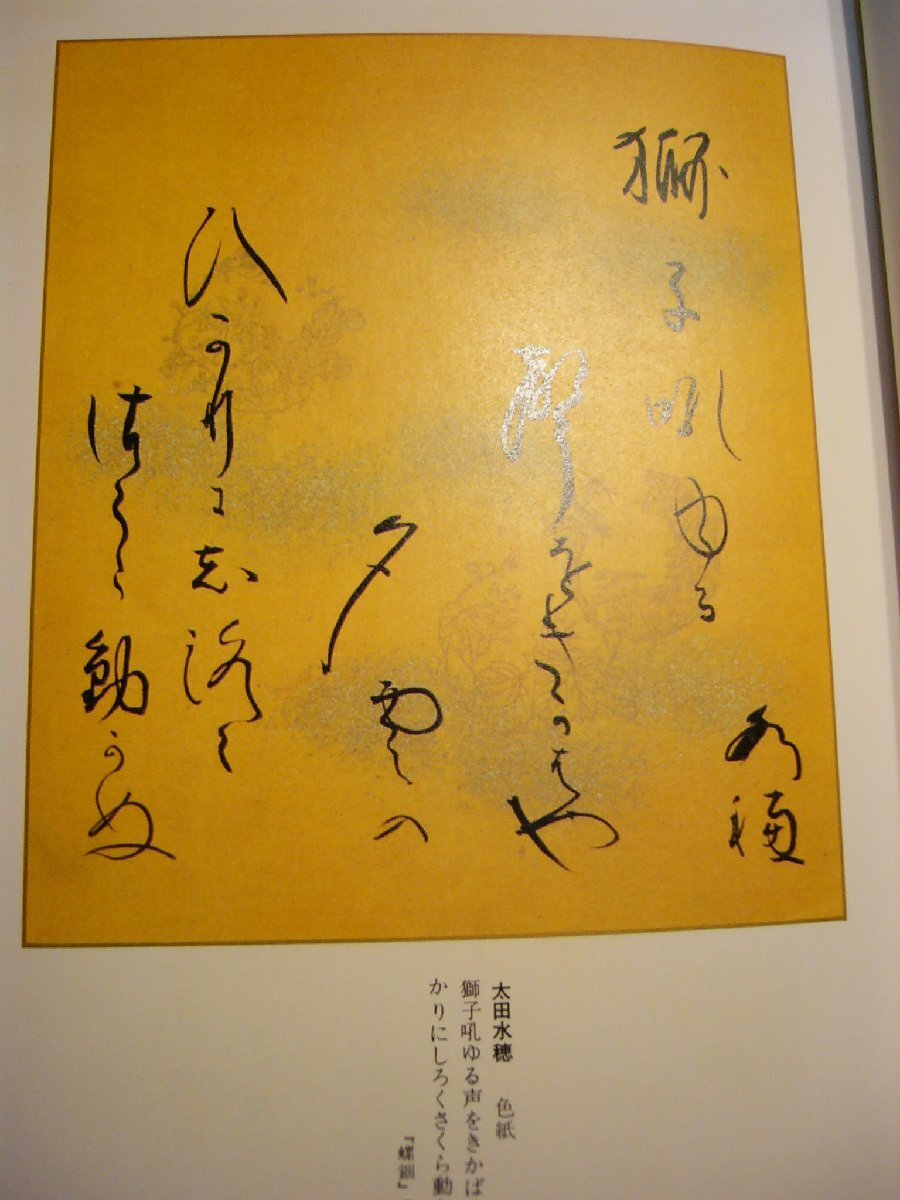 水穂
獅子吼ゆる
聲をきかはや
夕雲の
ひかりに志路く
佐くら動かぬ
太田水穂　色紙
獅子吼ゆる声をきかば
かりにしろくさくら動
『螺鈿』